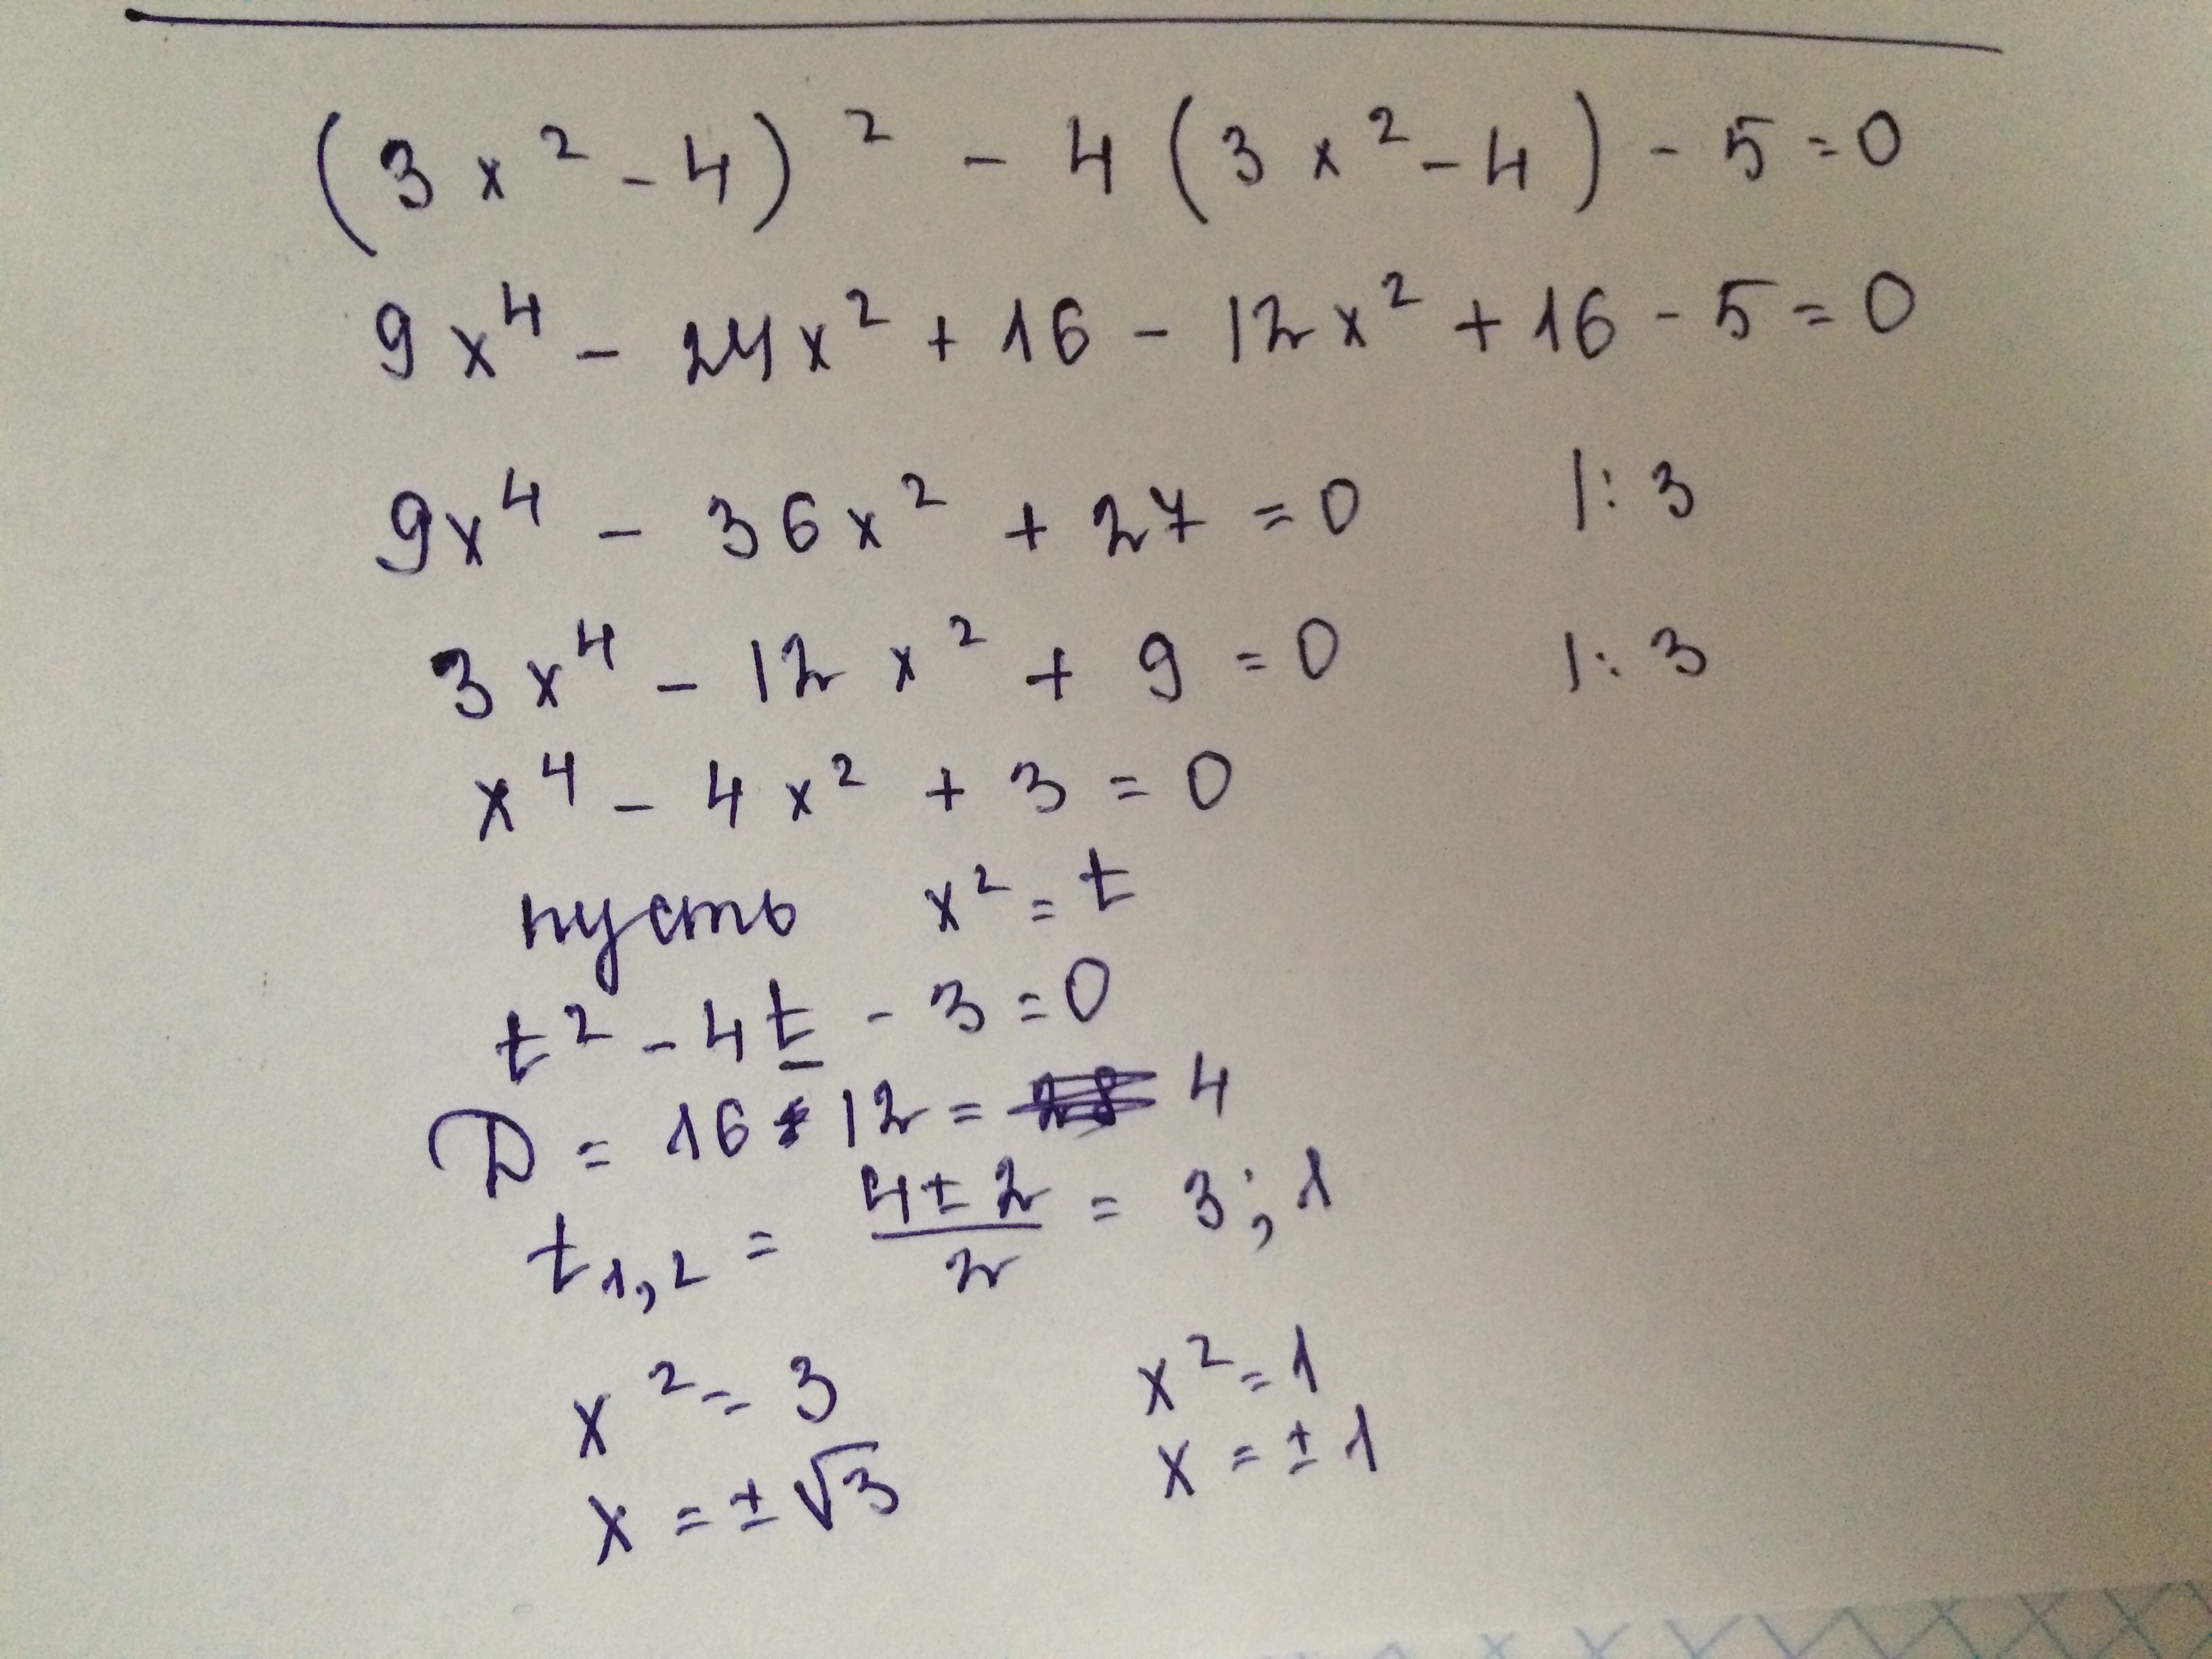 (3x² - 4)² - 4(3x² - 4) - 5 = 0
9x⁴ - 24x² + 16 - 12x² + 16 - 5 = 0
9x⁴ - 36x² + 27 = 0 |: 3
3x⁴ - 12x² + 9 = 0 |: 3
x⁴ - 4x² + 3 = 0
пусть x² = t
t² - 4t - 3 = 0
D = 16 - 12 = 4
t₁,₂ = (4 ± 2)/2 = 3; 1
x² = 3 x² = 1
x = ±√3 x = ±1